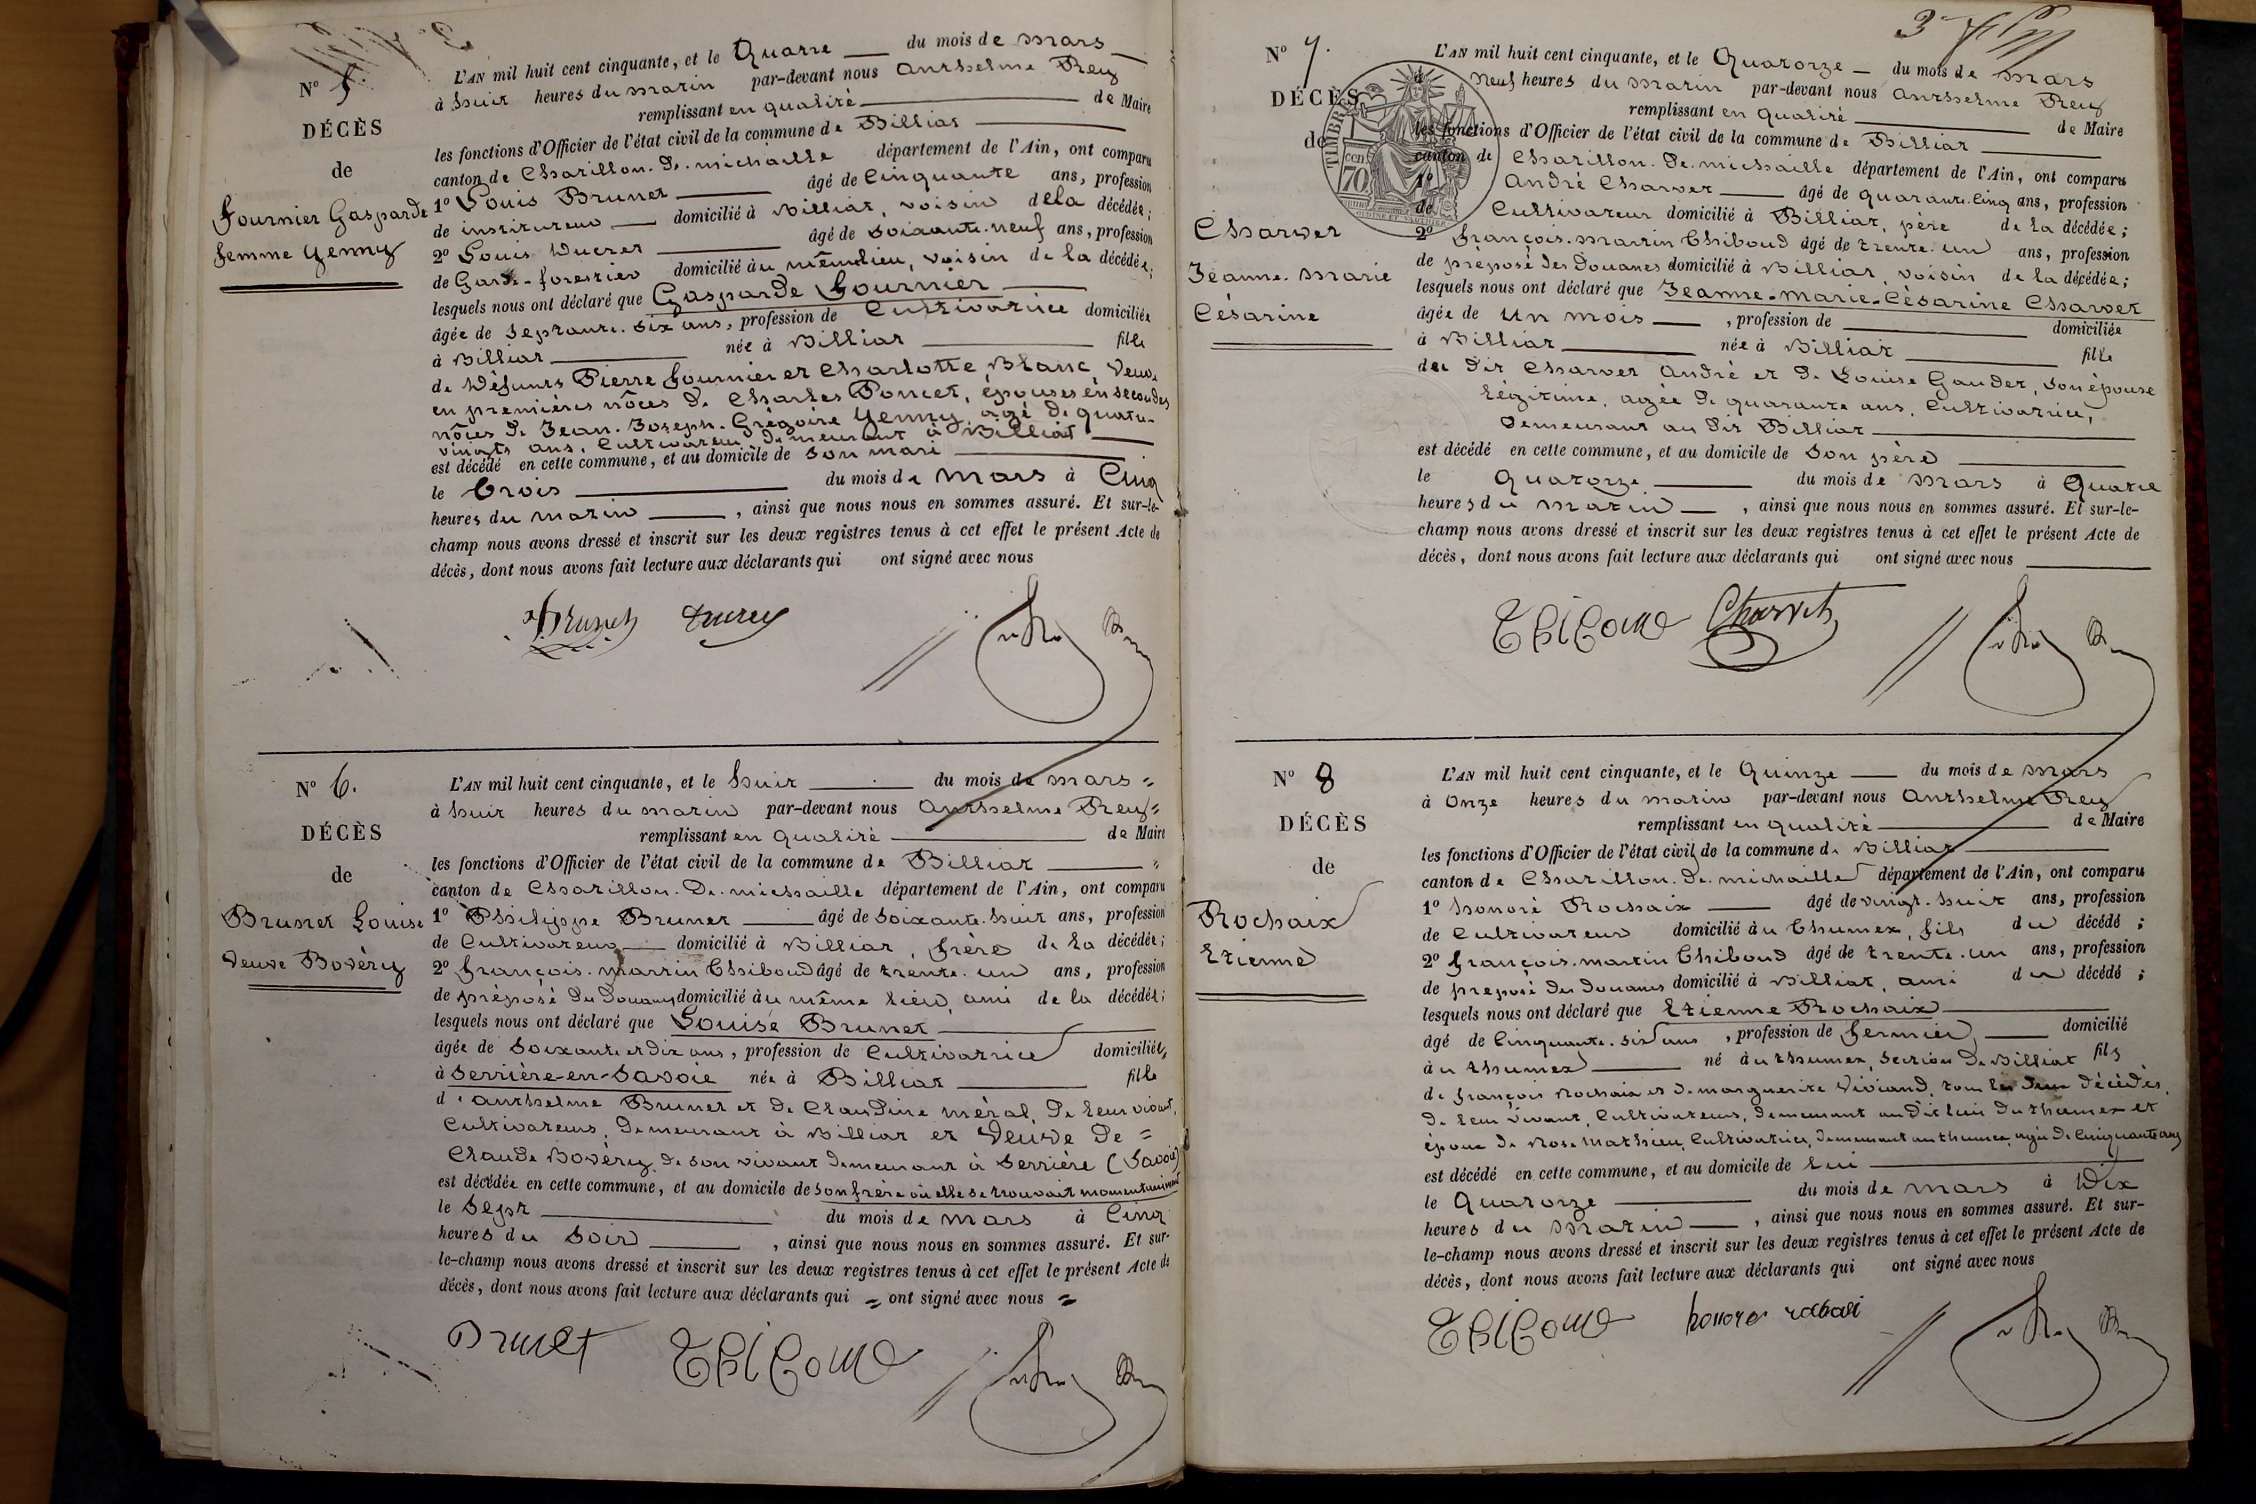 N° 5.
DÉCÈS
de
Fournier Gasparde
femme Yenny
L'AN mil huit cent cinquante, et le Quatre du mois de Mars
à huit heures du matin par-devant nous Anthelme Rey
remplissant en qualité de Maire
les fonctions d'Officier de l'état civil de la commune de Billiat
canton de Chatillon. De. michaille département de l'Ain, ont comparu
1° Louis Brunet âgé de Cinquante ans, profession
de instituteur domicilié à Billiat, voisin de la décédée;
2° Louis Ducret âgé de soixante-neuf ans, profession
de Garde-forestier domicilié au même lieu, voisin de la décédée;
lesquels nous ont déclaré que Gasparde Fournier
âgée de septante-six ans, profession de Cultivatrice domiciliée
à Billiat née à Billiat fille
de Défunts Pierre Fournier et Charlotte Blanc, Veuve
en premières nôces de Charles Poncet, épouse en secondes
nôces de Jean-Joseph-Grégoire Yenny, agé de quatre-
vingts ans, Cultivateur demeurant à Billiat
est décédé en cette commune, et au domicile de son mari
le Trois du mois de Mars à Cinq
heures du matin , ainsi que nous nous en sommes assuré. Et sur-le-
champ nous avons dressé et inscrit sur les deux registres tenus à cet effet le présent Acte de
décès, dont nous avons fait lecture aux déclarants qui ont signé avec nous
Brunet Ducret
N° 6.
DÉCÈS
de
Brunet Louise
Veuve Bovéry
L'AN mil huit cent cinquante, et le huit du mois de Mars
à huit heures du matin par-devant nous Anthelme Rey
remplissant en qualité de Maire
les fonctions d'Officier de l'état civil de la commune de Billiat
canton de Chatillon. De. michaille département de l'Ain, ont comparu
1° Philippe Brunet âgé de soixante-huit ans, profession
de Cultivateur domicilié à Billiat, frère de la décédée;
2° François-martin Thiboud âgé de trente-un ans, profession
de préposé des Douanes domicilié au même lieu, ami de la décédée;
lesquels nous ont déclaré que Louise Brunet
âgée de soixante et dix ans, profession de Cultivatrice domiciliée,
à Serrière-en-Savoie née à Billiat fille
d'Anthelme Brunet et de Claudine méral, De leur vivant,
Cultivateurs, demeurant à Billiat et Veuve De
Claude Bovéry, de son vivant demeurant à Serrière (Savoie)
est décédée en cette commune, et au domicile de son frère où elle se trouvait momentanément
le Sept du mois de Mars à Cinq
heures du Soir , ainsi que nous nous en sommes assuré. Et sur-
le-champ nous avons dressé et inscrit sur les deux registres tenus à cet effet le présent Acte de
décès, dont nous avons fait lecture aux déclarants qui = ont signé avec nous =
Brunet Thiboud
3e
N° 7.
DÉCÈS
de
Charvet
Jeanne-Marie
Césarine
TIMBRE
CEN
70
L'AN mil huit cent cinquante, et le Quatorze du mois de Mars
à Neuf heures du matin par-devant nous Anthelme Rey
remplissant en qualité de Maire
les fonctions d'Officier de l'état civil de la commune de Billiat
canton de Chatillon. De. michaille département de l'Ain, ont comparu
1° André Charvet âgé de quarante-cinq ans, profession
de Cultivateur domicilié à Billiat, père de la décédée;
2° François-martin Thiboud âgé de trente-un ans, profession
de préposé des Douanes domicilié à Billiat, voisin de la décédée;
lesquels nous ont déclaré que Jeanne-Marie-Césarine Charvet
âgée de un mois , profession de domiciliée
à Billiat née à Billiat fille
du dit Charvet André et de Louise Gaudet, son épouse
légitime, agée de quarante ans, Cultivatrice,
demeurant au dit Billiat
est décédé en cette commune, et au domicile de son père
le Quatorze du mois de Mars à Quatre
heures du matin , ainsi que nous nous en sommes assuré. Et sur-le-
champ nous avons dressé et inscrit sur les deux registres tenus à cet effet le présent Acte de
décès, dont nous avons fait lecture aux déclarants qui ont signé avec nous
Thiboud Charvet
N° 8
DÉCÈS
de
Rochaix
Etienne
L'AN mil huit cent cinquante, et le Quinze du mois de Mars
à Onze heures du matin par-devant nous Anthelme Rey
remplissant en qualité de Maire
les fonctions d'Officier de l'état civil de la commune de Billiat
canton de Chatillon. De. michaille département de l'Ain, ont comparu
1° honoré Rochaix âgé de vingt-huit ans, profession
de Cultivateur domicilié au Thumex, fils du décédé;
2° François-martin Thiboud âgé de trente-un ans, profession
de préposé des douanes domicilié à Billiat, ami du décédé;
lesquels nous ont déclaré que Etienne Rochaix
âgé de Cinquante-six ans , profession de fermier, domicilié
au thumex né au thumex, section de Billiat fils
de François Rochaix et de marguerite Viviand, tous les deux décédés,
de leur vivant, Cultivateurs, demeurant au dit lieu du thumex et
époux de Rose Mathieu, Cultivatrice, demeurant au thumex, agée de Cinquante ans
est décédé en cette commune, et au domicile de lui
le Quatorze du mois de Mars à Dix
heures du Matin , ainsi que nous nous en sommes assuré. Et sur-
le-champ nous avons dressé et inscrit sur les deux registres tenus à cet effet le présent Acte de
décès, dont nous avons fait lecture aux déclarants qui ont signé avec nous
Thiboud honoré